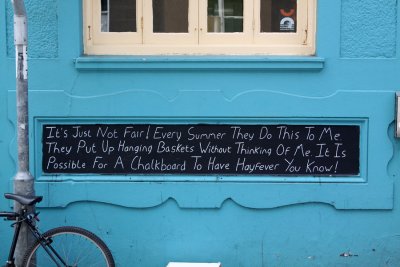 It's Just Not Fair! Every Summer They Do This To Me.
They Put Up Hanging Baskets Without Thinking Of Me. It Is
Possible For A Chalkboard To Have Hayfever You Know!